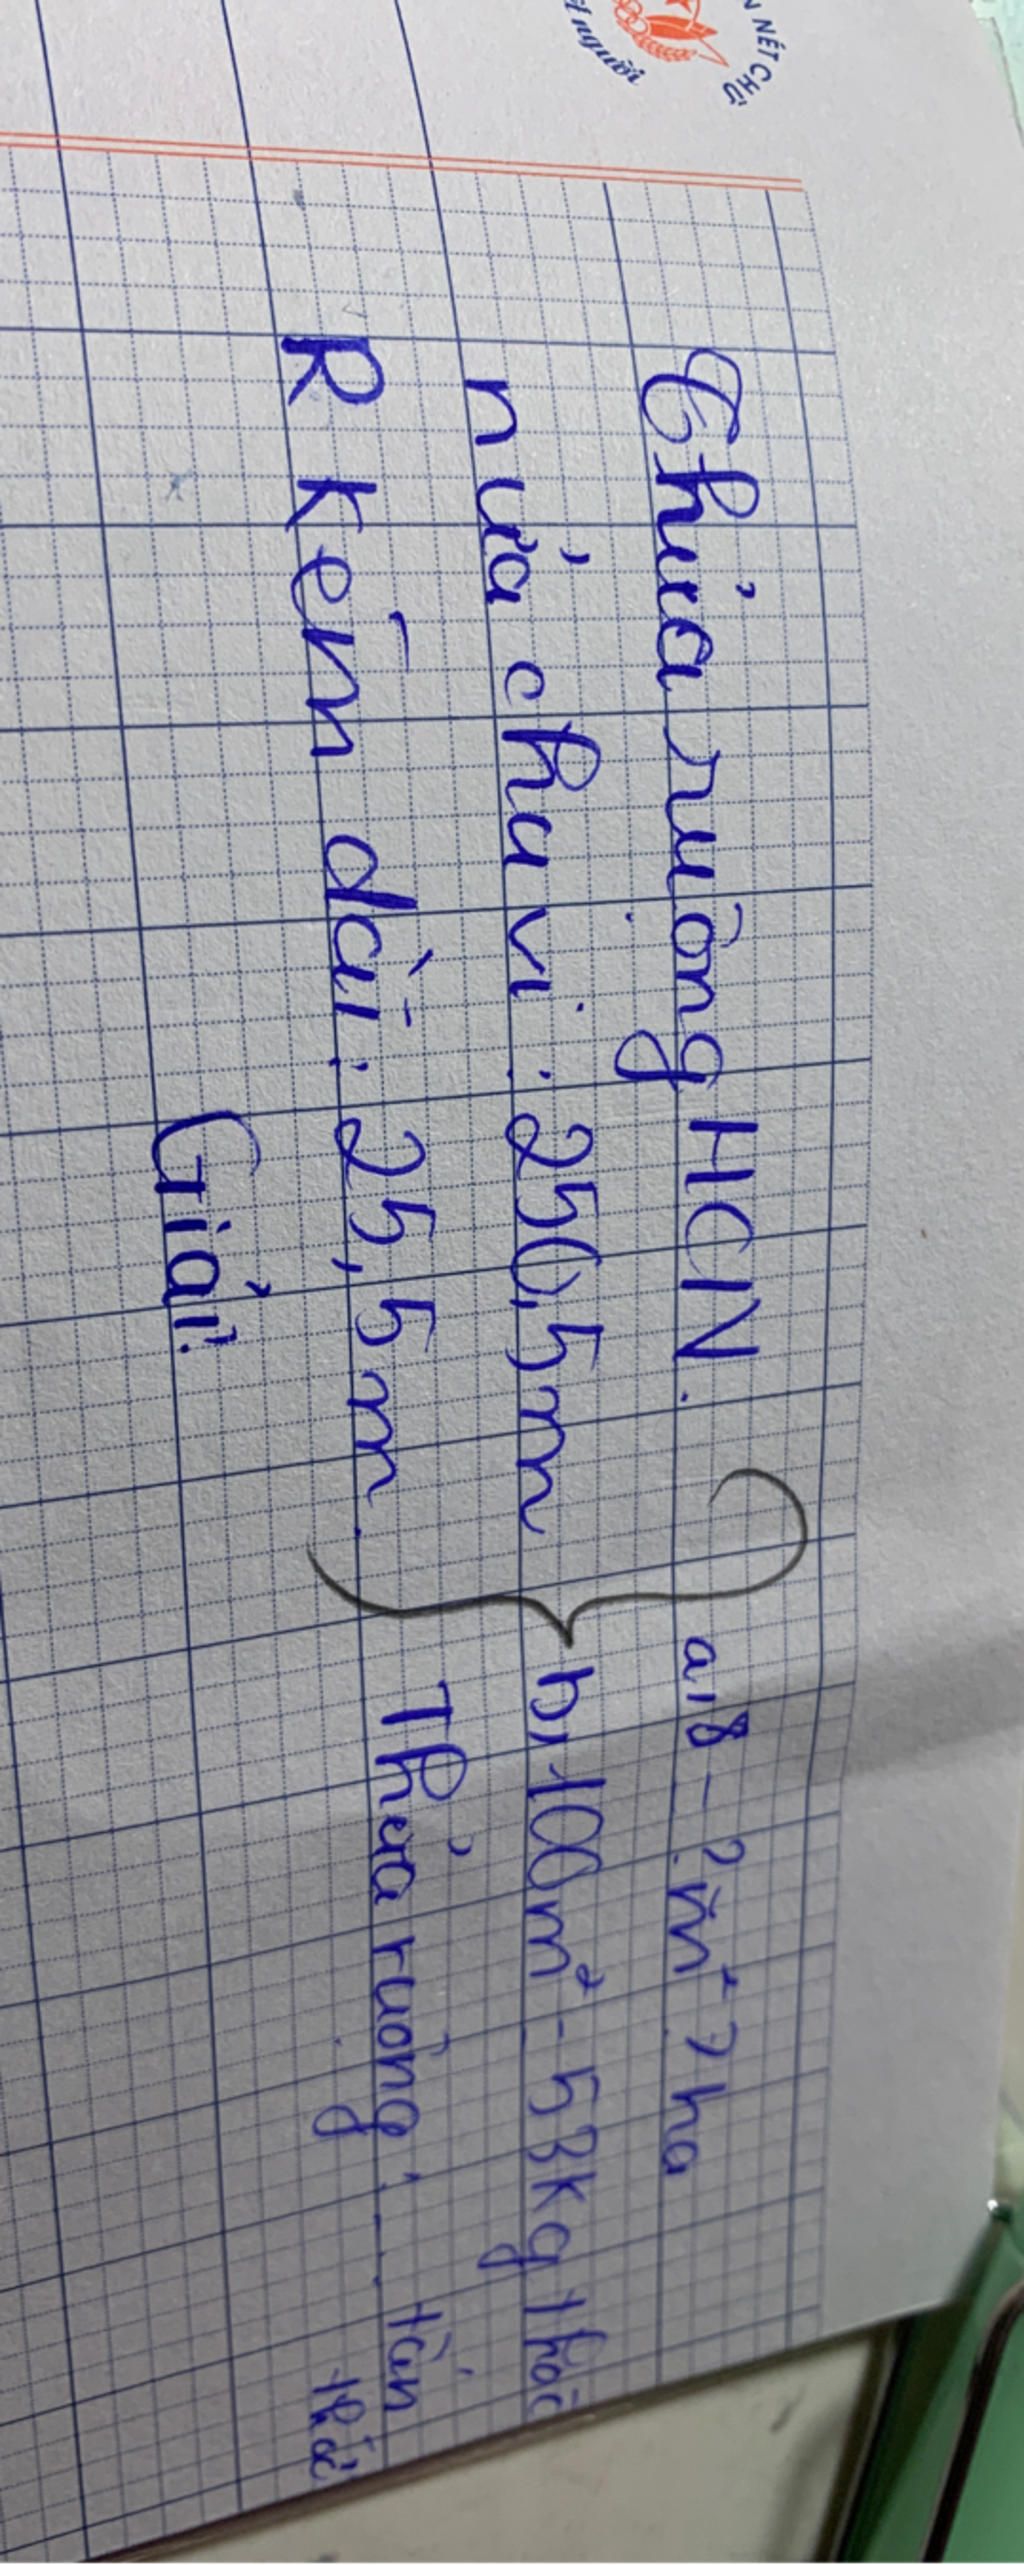 N NÉT CHỮ
người
Thửa ruộng HCN.
nửa chu vi: 250,5m
R kém dài: 25,5m
a, S - ? m² ? ha
b, 100m² - 53kg thóc
Thửa ruộng: ... tấn
thóc
Giải: